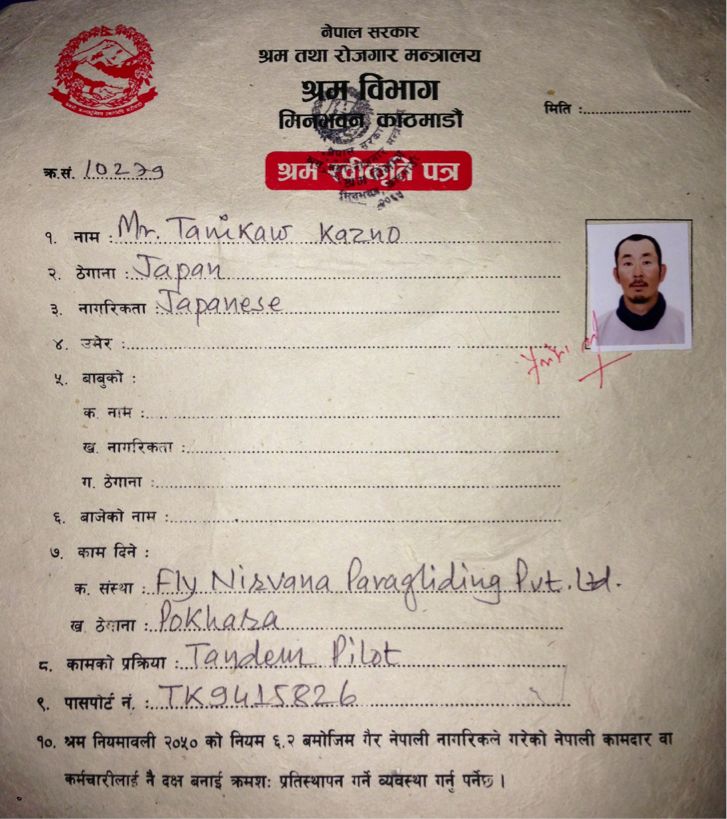 नेपाल सरकार
श्रम तथा रोजगार मन्त्रालय
श्रम विभाग
मिनभवन, काठमाडौं
मिति :
क्र.सं. 10279
श्रम स्वीकृति पत्र
१. नाम : Mr. Tanikaw Kazno
२. ठेगाना : Japan
३. नागरिकता : Japanese
४. उमेर :
५. बाबुको :
क. नाम :
ख. नागरिकता :
ग. ठेगाना :
६. बाजेको नाम :
७. काम दिने :
क. संस्था : Fly Nirvana Paragliding Pvt. Ltd.
ख. ठेगाना : Pokhara
८. कामको प्रक्रिया : Tandem Pilot
९. पासपोर्ट नं. : TK9415826
१०. श्रम नियमावली २०५० को नियम ६.२ बमोजिम गैर नेपाली नागरिकले गरेको नेपाली कामदार वा
कर्मचारीलाई नै दक्ष बनाई क्रमशः प्रतिस्थापन गर्ने व्यवस्था गर्नु पर्नेछ ।